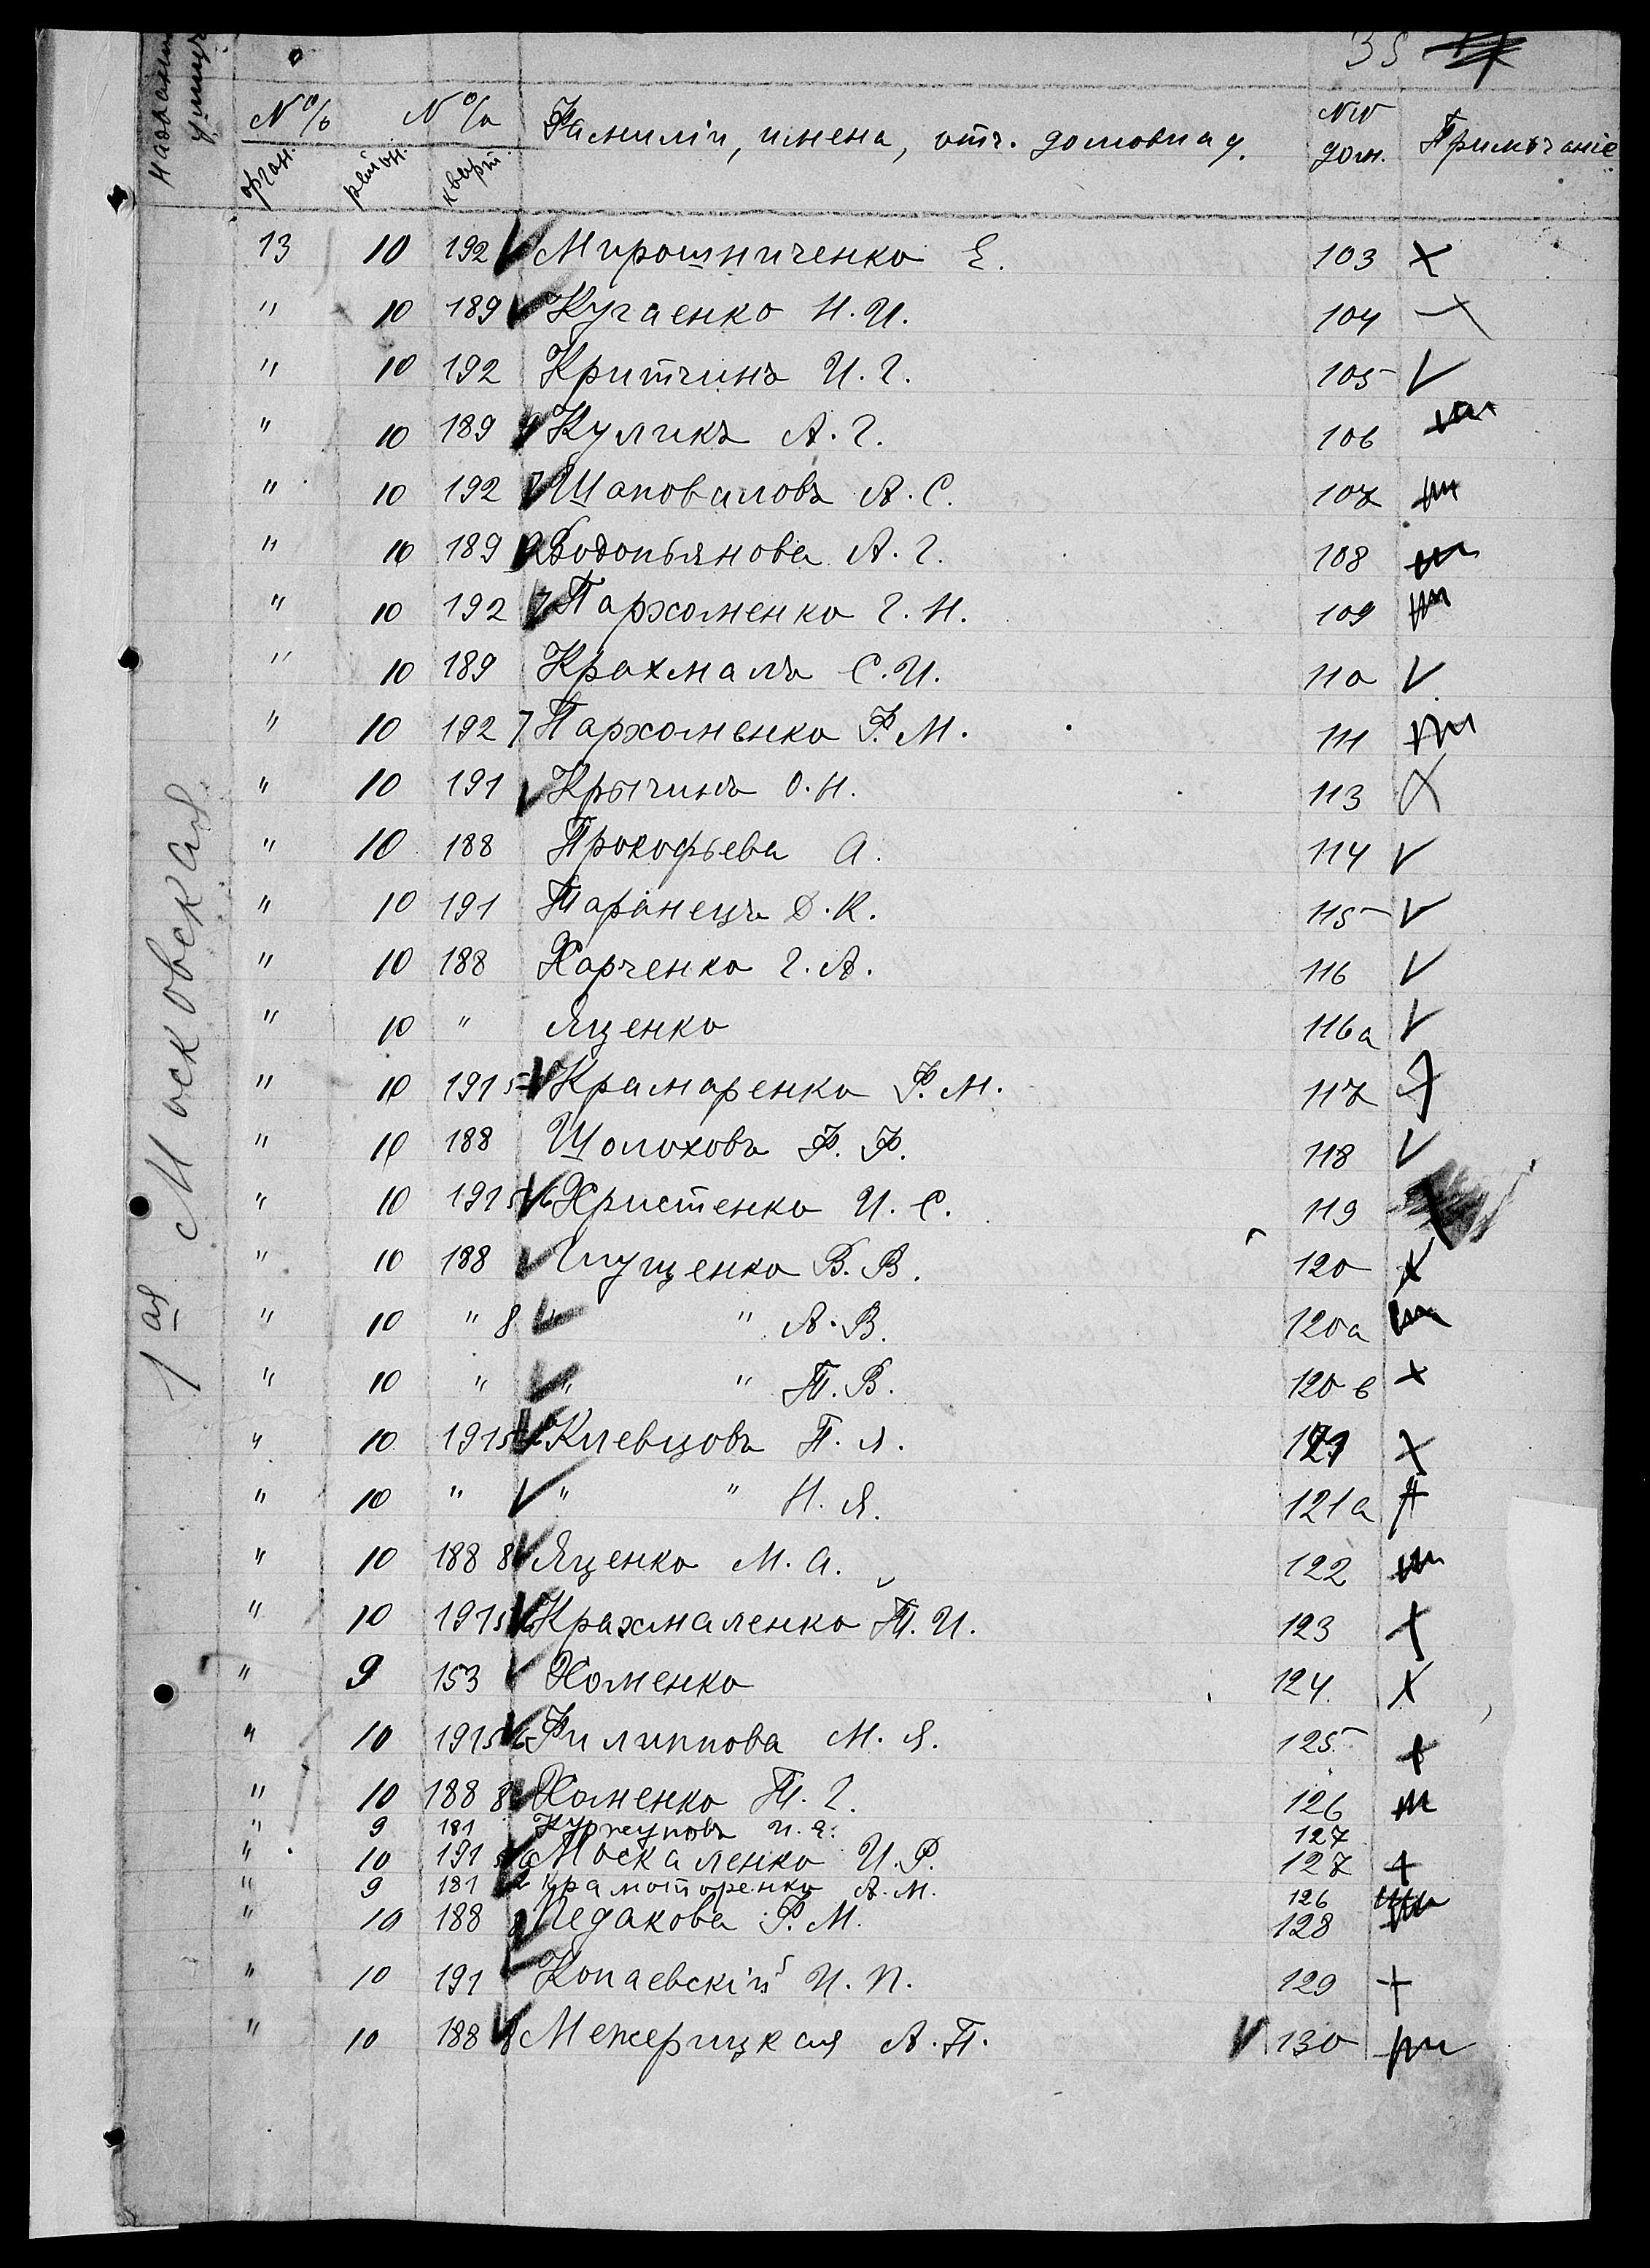 35
Названіе улицъ
№% № %
орган. район. кварт.
Фамиліи, имена, отч. домовлад.
№№ дом.
Примѣчаніе
1ая Московская
13 10 192 Мирошниченко Е. 103
" 10 189 Кугаенко Н. И. 104
" 10 192 Критчинъ И. Г. 105
" 10 189 Куликъ А. Г. 106
" 10 192 Шаповаловъ А. С. 107
" 10 189 Водопьянова А. Г. 108
" 10 192 7 Пархоменко Г. Н. 109
" 10 189 Крахмаль С. И. 110
" 10 192 7 Пархоменко Ф. М. 111
" 10 191 Крычинъ О. Н. 113
" 10 188 Прокофьева А. 114
" 10 191 Таранецъ Д. К. 115
" 10 188 Харченко Г. А. 116
" 10 " Яценко 116а
" 10 191 5 Крамаренко Ф. М. 117
" 10 188 Шолоховъ Ф. Ф. 118
" 10 191 5 6 Христенко И. С. 119
" 10 188 Глущенко В. В. 120
" 10 " 8 " " А. В. 120а
" 10 " " " Т. В. 120в
" 10 191 5 Клевцовъ П. Я. 121
" 10 " " " Н. Я. 121а
" 10 188 8 Яценко М. А. 122
" 10 191 5 6 Крахмаленко Т. И. 123
" 9 153 Хоменко 124
" 10 191 5 6 Филиппова М. Я. 125
" 10 188 8 Хоменко Т. Г. 126
" 9 181 И. Я. 127
" 10 191 5 6 Москаленко И. Ф. 127
" 9 181 2 А. М. 126
" 10 188 Педакова Ф. М. 128
" 10 191 Копаевскій И. П. 129
" 10 188 8 Межерицкая А. П. 130